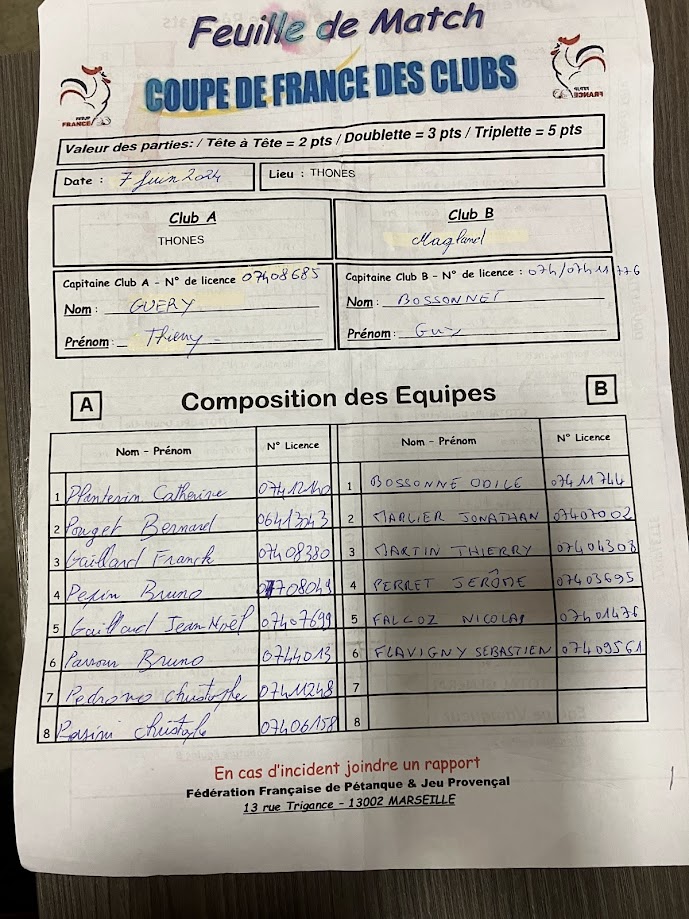 Feuille de Match
COUPE DE FRANCE DES CLUBS
FRANCE
FRANCE
Valeur des parties: / Tête à Tête = 2 pts / Doublette = 3 pts / Triplette = 5 pts
Date : 7 Juin 2024
Lieu : THONES
Club A
THONES
Club B
Magland
Capitaine Club A - N° de licence 07408685
Nom : GUERY
Prénom : Thierry
Capitaine Club B - N° de licence : 074/07411776
Nom : BOSSONNET
Prénom : Guy
A
Composition des Equipes
B
Nom - Prénom N° Licence Nom - Prénom N° Licence
1 Catherine 07412140 1 BOSSONNE ODILE 07411744
2 Pouget Bernard 06413343 2 MARLIER JONATHAN 07407002
3 Gaillard Franck 07408380 3 MARTIN THIERRY 07404308
4 Bruno 07708049 4 PERRET JERÔME 07403695
5 Gaillard Jean Noël 07407699 5 FALCOZ NICOLAS 07401476
6 Bruno 0744013 6 FLAVIGNY SEBASTIEN 07409561
7 Pedrono Christophe 07411248 7
8 Christophe 07406158 8
En cas d'incident joindre un rapport
Fédération Française de Pétanque & Jeu Provençal
13 rue Trigance - 13002 MARSEILLE